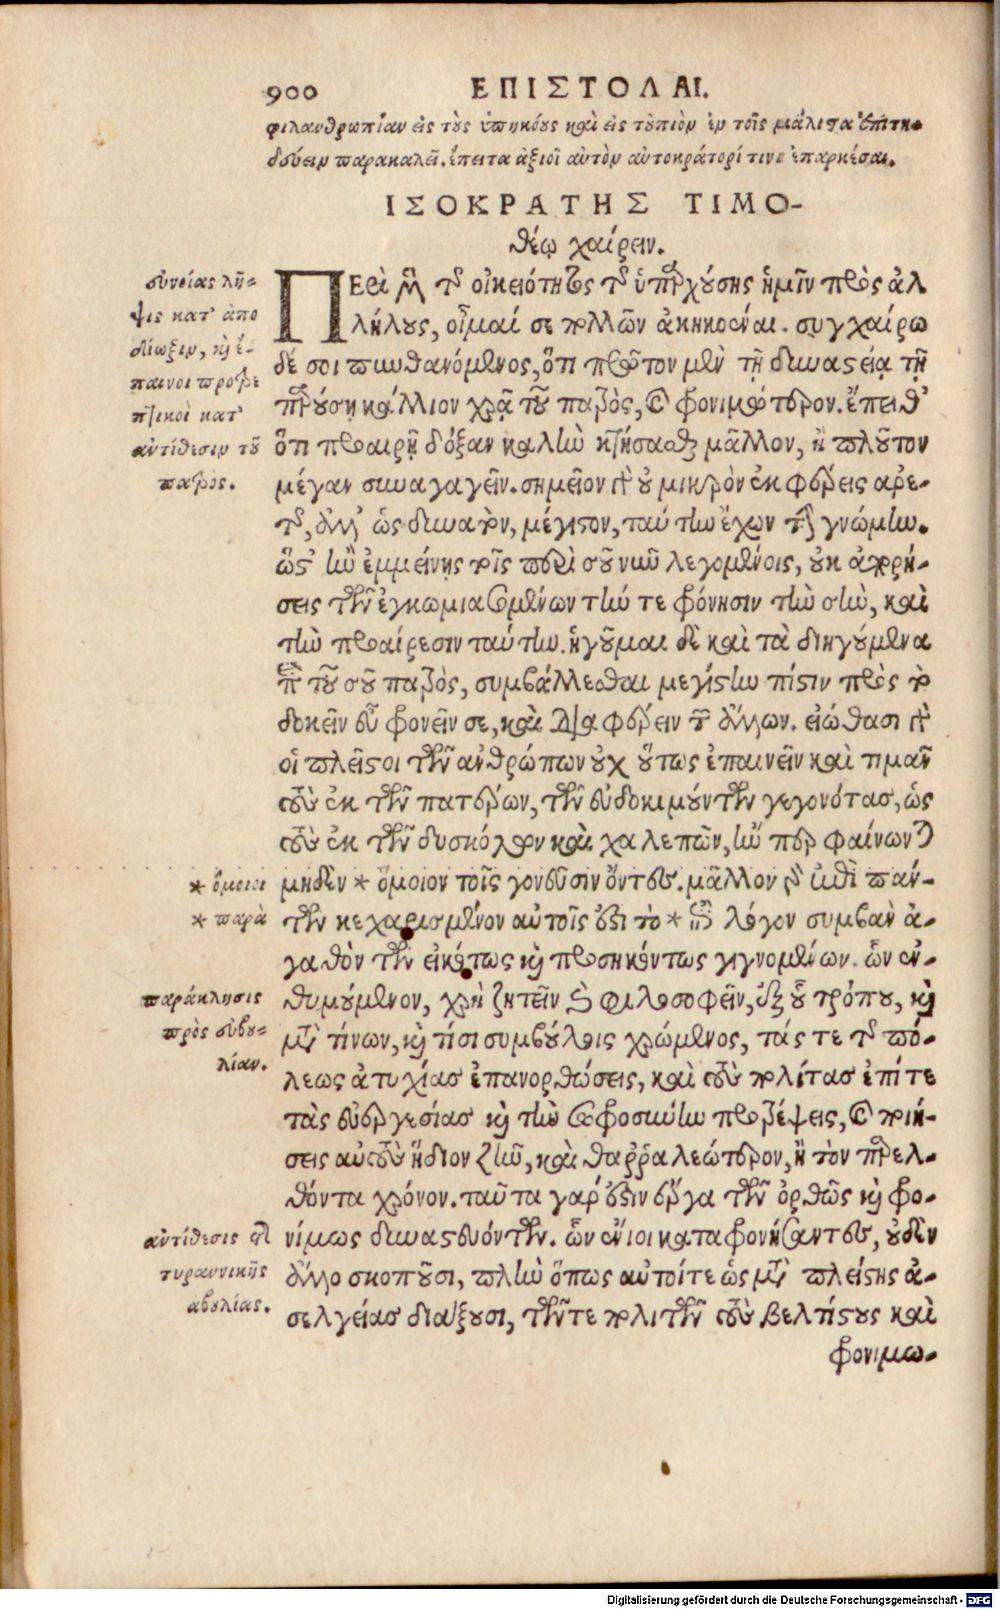 900 ΕΠΙΣΤΟΛΑΙ.
φιλανθρωπίαν εἰς τοὺς ὑπηκόους καὶ εἰς τοὐπιὸν ἐν τοῖς μάλιστα ἐπιτη-
δεύειν παρακαλεῖ. ἔπειτα ἀξιοῖ αὐτὸν αὐτοκράτορί τινι ἐπαρκέσαι.
ΙΣΟΚΡΑΤΗΣ ΤΙΜΟ-
θέῳ χαίρειν.
ΠΕρὶ μὲν τῆς οἰκειότητος τῆς ὑπαρχούσης ἡμῖν πρὸς ἀλ
λήλους, οἶμαί σε πολλῶν ἀκηκοέναι. συγχαίρω
δέ σοι πυνθανόμενος, ὅτι πρῶτον μὲν τῇ δυναστείᾳ τῇ
παρούσῃ κάλλιον χρᾷ τοῦ πατρὸς, καὶ φρονιμώτερον. ἔπειθ'
ὅτι προαιρῇ δόξαν καλὴν κτήσασθαι μᾶλλον, ἢ πλοῦτον
μέγαν συναγαγεῖν. σημεῖον γὰρ οὐ μικρὸν ἐκφέρεις ἀρε-
τῆς, ἀλλ' ὡς δυνατὸν, μέγιστον, ταύτην ἔχων τὴν γνώμην.
ὥστ' ἢν ἐμμείνῃς τοῖς περὶ σοῦ νῦν λεγομένοις, οὐκ ἀπορή-
σεις τῶν ἐγκωμιασομένων τήν τε φρόνησιν τὴν σὴν, καὶ
τὴν προαίρεσιν ταύτην. ἡγοῦμαι δὲ καὶ τὰ διηγούμενα
περὶ τοῦ σοῦ πατρὸς, συμβάλλεσθαι μεγίστην πίστιν πρὸς τὸ
δοκεῖν εὖ φρονεῖν σε, καὶ διαφέρειν τῶν ἄλλων. εἰώθασι γὰρ
οἱ πλεῖστοι τῶν ἀνθρώπων οὐχ οὕτως ἐπαινεῖν καὶ τιμᾶν
τοὺς ἐκ τῶν πατέρων, τῶν εὐδοκιμούντων γεγονότας, ὡς
τοὺς ἐκ τῶν δυσκόλων καὶ χαλεπῶν, ἤν περ φαίνωνται
μηδὲν * ὅμοιον τοῖς γονεῦσιν ὄντες. μᾶλλον γὰρ ἐπὶ πάν-
των κεχαρισμένον αὐτοῖς ἐστι τὸ * λόγον συμβὰν ἀ-
γαθὸν τῶν εἰκότως καὶ προσηκόντως γιγνομένων. ὧν ἐν-
θυμούμενον, χρὴ ζητεῖν καὶ φιλοσοφεῖν, ἐξ οὗ τρόπου, καὶ
μετὰ τίνων, καὶ τίσι συμβούλοις χρώμενος, τάς τε τῆς πό-
λεως ἀτυχίας ἐπανορθώσεις, καὶ τοὺς πολίτας ἐπί τε
τὰς εὐεργεσίας καὶ τὴν σωφροσύνην προτρέψεις, καὶ ποιή-
σεις αὐτοὺς ἥδιον ζῆν, καὶ θαῤῥαλεώτερον, ἢ τὸν παρελ-
θόντα χρόνον. ταῦτα γάρ ἐστιν ἔργα τῶν ὀρθῶς καὶ φρο-
νίμως δυναστευόντων. ὧν ἔνιοι καταφρονήσαντες, οὐδὲν
ἄλλο σκοποῦσι, πλὴν ὅπως αὐτοί τε ὡς μετὰ πλείστης ἀ-
σελγείας διάξουσι, τῶν τε πολιτῶν τοὺς βελτίστους καὶ
φρονιμω-
λῆ-
ψις κατ' ἀπο
δίωξιν, καὶ ἔ-
παινοι προτρε
πτικοὶ κατ'
ἀντίθεσιν τοῦ
πατρός.
* ὅμοιοι
* παρὰ
παράκλησις
πρὸς εὐβου-
λίαν.
ἀντίθεσις τῆς
τυραννικῆς
ἀβουλίας.
Digitalisierung gefördert durch die Deutsche Forschungsgemeinschaft - DFG